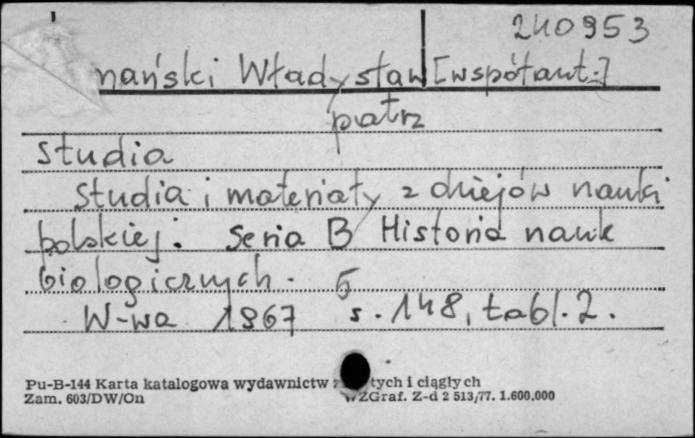 240953
nański Władysław [współaut.]
patrz
Studia
Studia i materiały z dziejów nauki
polskiej. Seria B Historia nauk
biologicznych. 5
W-wa 1967 s. 148, tabl. 2.
Pu-B-144 Karta katalogowa wydawnictw z tych i ciągłych
Zam. 603/DW/On WZGraf. Z-d 2 513/77. 1.600.000